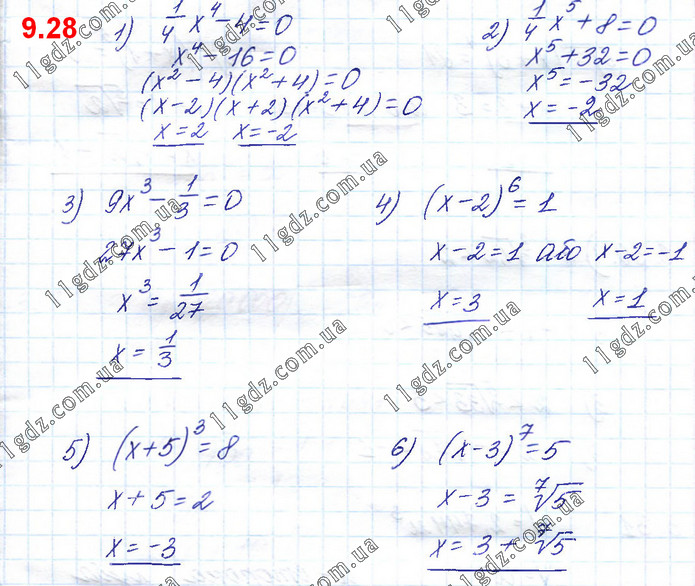 9.28
1) 1/4 x⁴ - 4 = 0
x⁴ - 16 = 0
(x² - 4)(x² + 4) = 0
(x - 2)(x + 2)(x² + 4) = 0
x = 2 x = -2
2) 1/4 x⁵ + 8 = 0
x⁵ + 32 = 0
x⁵ = -32
x = -2
3) 9x³ - 1/3 = 0
27x³ - 1 = 0
x³ = 1/27
x = 1/3
4) (x - 2)⁶ = 1
x - 2 = 1 або x - 2 = -1
x = 3 x = 1
5) (x + 5)³ = 8
x + 5 = 2
x = -3
6) (x - 3)⁷ = 5
x - 3 = ⁷√5
x = 3 + ⁷√5
11gdz.com.ua
11gdz.com.ua
11gdz.com.ua
11gdz.com.ua
11gdz.com.ua
11gdz.com.ua
11gdz.com.ua
11gdz.com.ua
11gdz.com.ua
11gdz.com.ua
11gdz.com.ua